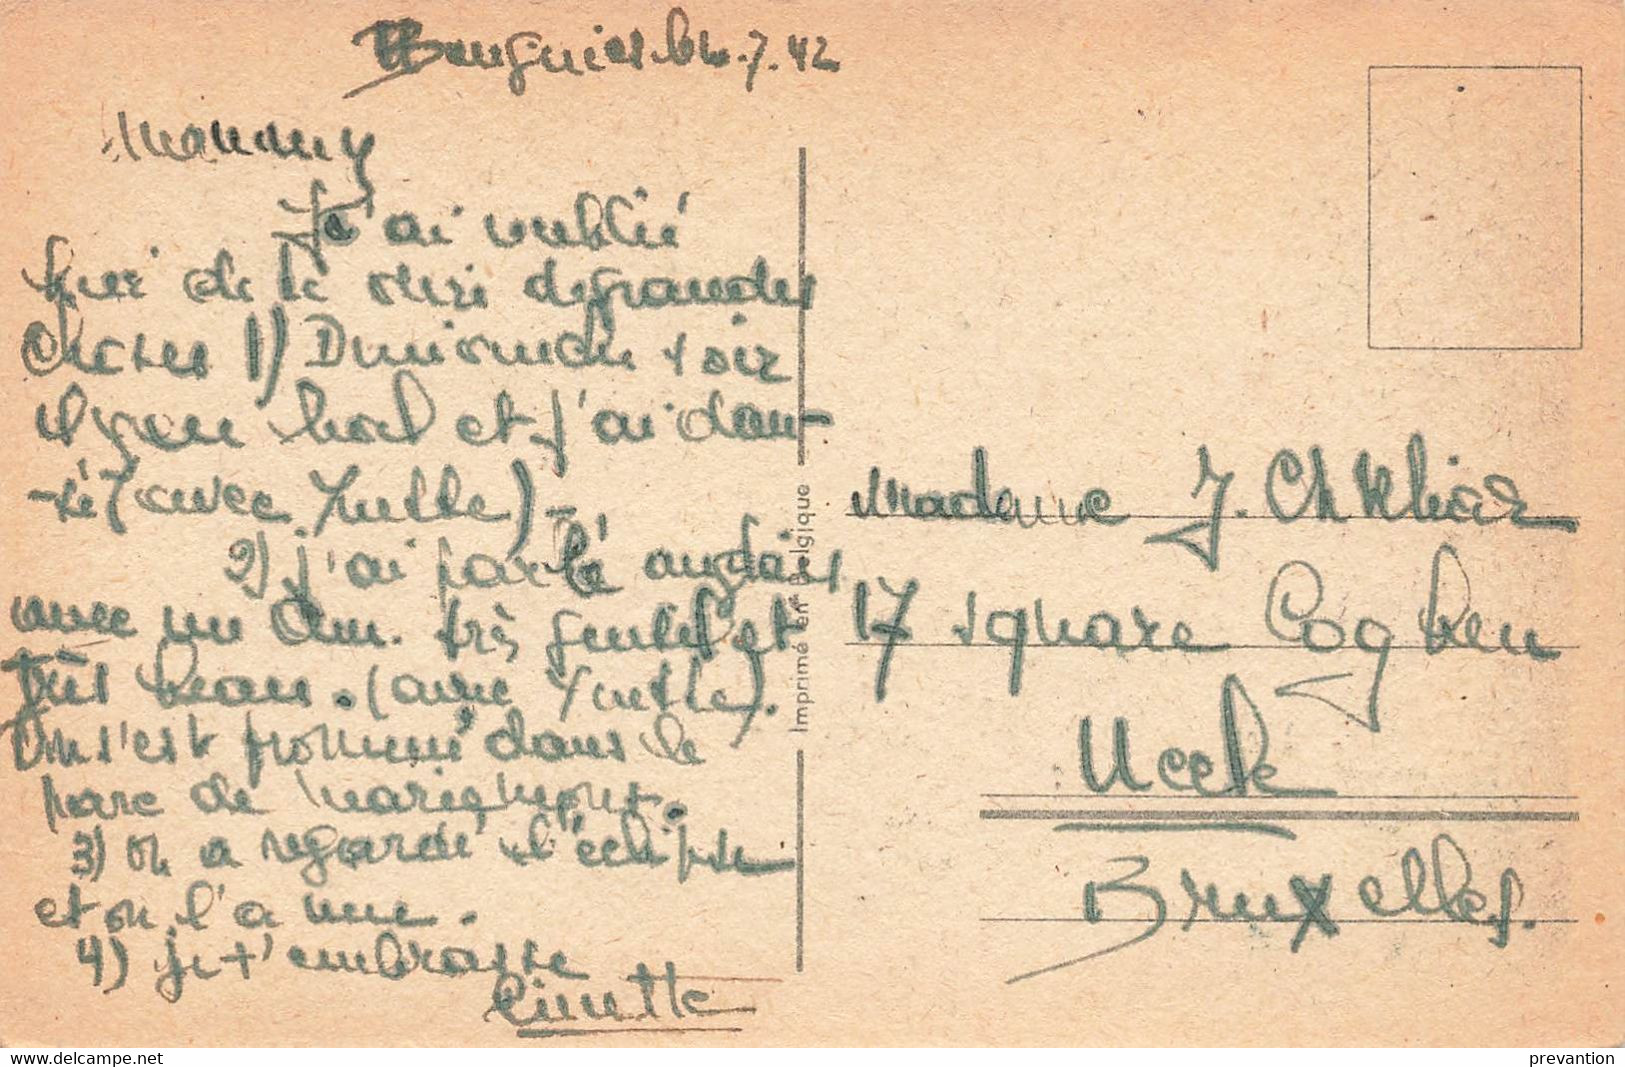 Bougnies. le 4.7.42
Mammy
J'ai oublié
hier de te dire de grandes
choses 1) Dimanche soir
il y a eu bal et j'ai dan-
-sé (avec Yvette) -
2) j'ai parlé anglais
avec un Am. très gentil et
très beau. (avec Yvette).
On s'est promené dans le
parc de Mariemont.
3) on a regardé l'éclipse
et on l'a vue.
4) je t'embrasse
Ginette
Imprimé en Belgique
Madame J. Chkliar
17 square Coghen
Uccle
Bruxelles.
delcampe.net
prevantion